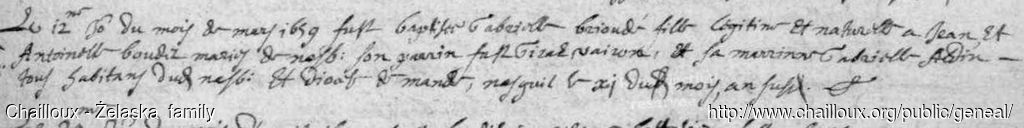 Le 12me Jor du mois de mars 1659 fust baptisée Gabrielle brioudé fille légitime et naturelle a Jean et
Antoinette boudit maries de nasbi son parrin fust Girac vairon, et sa marrine Gabrielle Adin
tous habitans dud nasbi et diocese de mande, nasquit le xj dud mois, an susd.
Chailloux - Żelaska family http://www.chailloux.org/public/geneal/